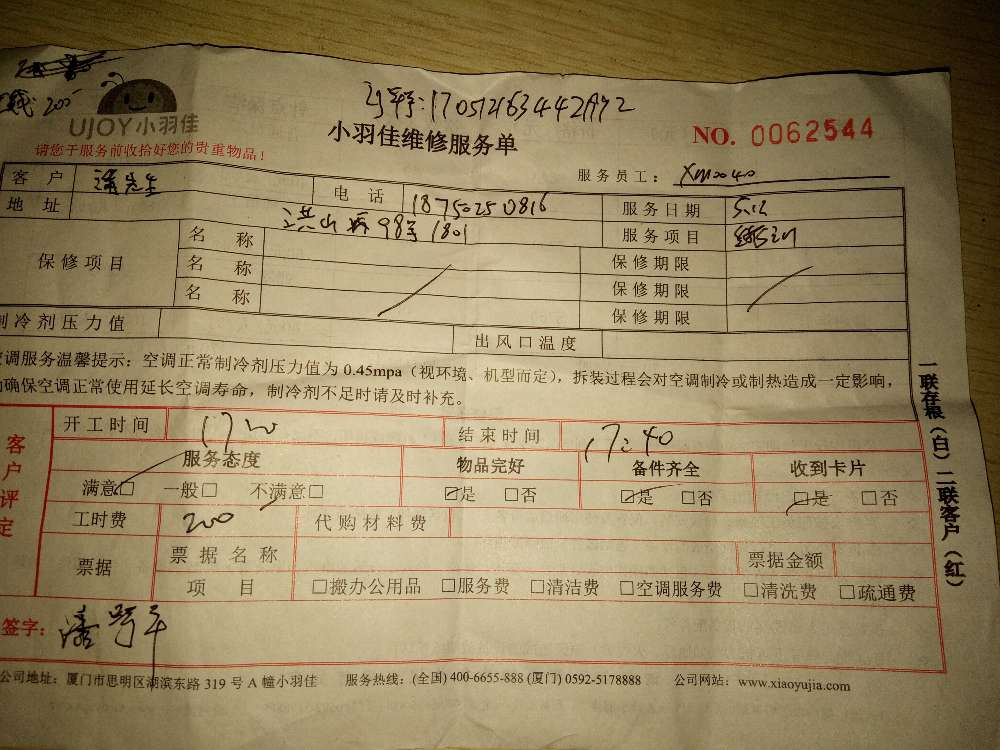 200
UJOY小羽佳
请您于服务前收拾好您的贵重物品！
17051263442
小羽佳维修服务单
NO. 0062544
服务员工： Xm0040
客户 潘先生 电话 18750250816 服务日期 5.12
地址 洪山 98号 1801 服务项目
保修项目 名称 保修期限
名称 保修期限
名称 保修期限
制冷剂压力值 出风口温度
空调服务温馨提示：空调正常制冷剂压力值为 0.45mpa（视环境、机型而定），拆装过程会对空调制冷或制热造成一定影响，
为确保空调正常使用延长空调寿命，制冷剂不足时请及时补充。
客户评定
开工时间 17 结束时间 17:40
服务态度 物品完好 备件齐全 收到卡片
满意□ 一般□ 不满意□ ☑是 □否 ☑是 □否 ☑是 □否
工时费 200 代购材料费
票据 票据名称 票据金额
项目 □搬办公用品 □服务费 □清洁费 □空调服务费 □清洗费 □疏通费
签字：潘
公司地址：厦门市思明区湖滨东路 319 号 A 幢小羽佳 服务热线：(全国) 400-6655-888 (厦门) 0592-5178888 公司网站：www.xiaoyujia.com
一联存根（白）二联客户（红）